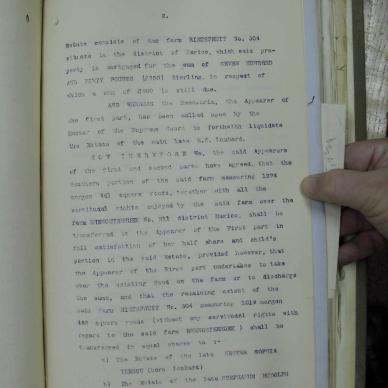 2.
Estate consists of the farm RIETSPRUIT No. 504
situate in the district of Marico, which said pro-
perty is mortgaged for the sum of SEVEN HUNDRED
AND FIFTY POUNDS (£750) Sterling, in respect of
which a sum of is still due.
AND WHEREAS the Executrix, the Appearer of
the first part, has been called upon by the
Master of the Supreme Court to forthwith liquidate
the Estate of the said late Lombard.
NOW THEREFORE We, the said Appearers
of the first and second parts have agreed, that the
Southern portion of the said farm measuring 1274
morgen square roods, together with all the
servitual rights enjoyed by the said farm over the
farm No. district Marico, shall be
transferred to the Appearer of the First part in
full satisfaction of her half share and child's
portion in the said Estate, provided however, that
the Appearer of the First part undertakes to take
over the existing Bond on the farm or to discharge
the same, and that the remaining extent of the
said farm RIETSPRUIT No. 504 measuring 1019 morgen
square roods (without any servitual rights with
regard to the said farm ) shall be
transferred in equal shares to :-
a) The Estate of the late SOPHIA
(born Lombard)
b) The Estate of the late RUDOLPH